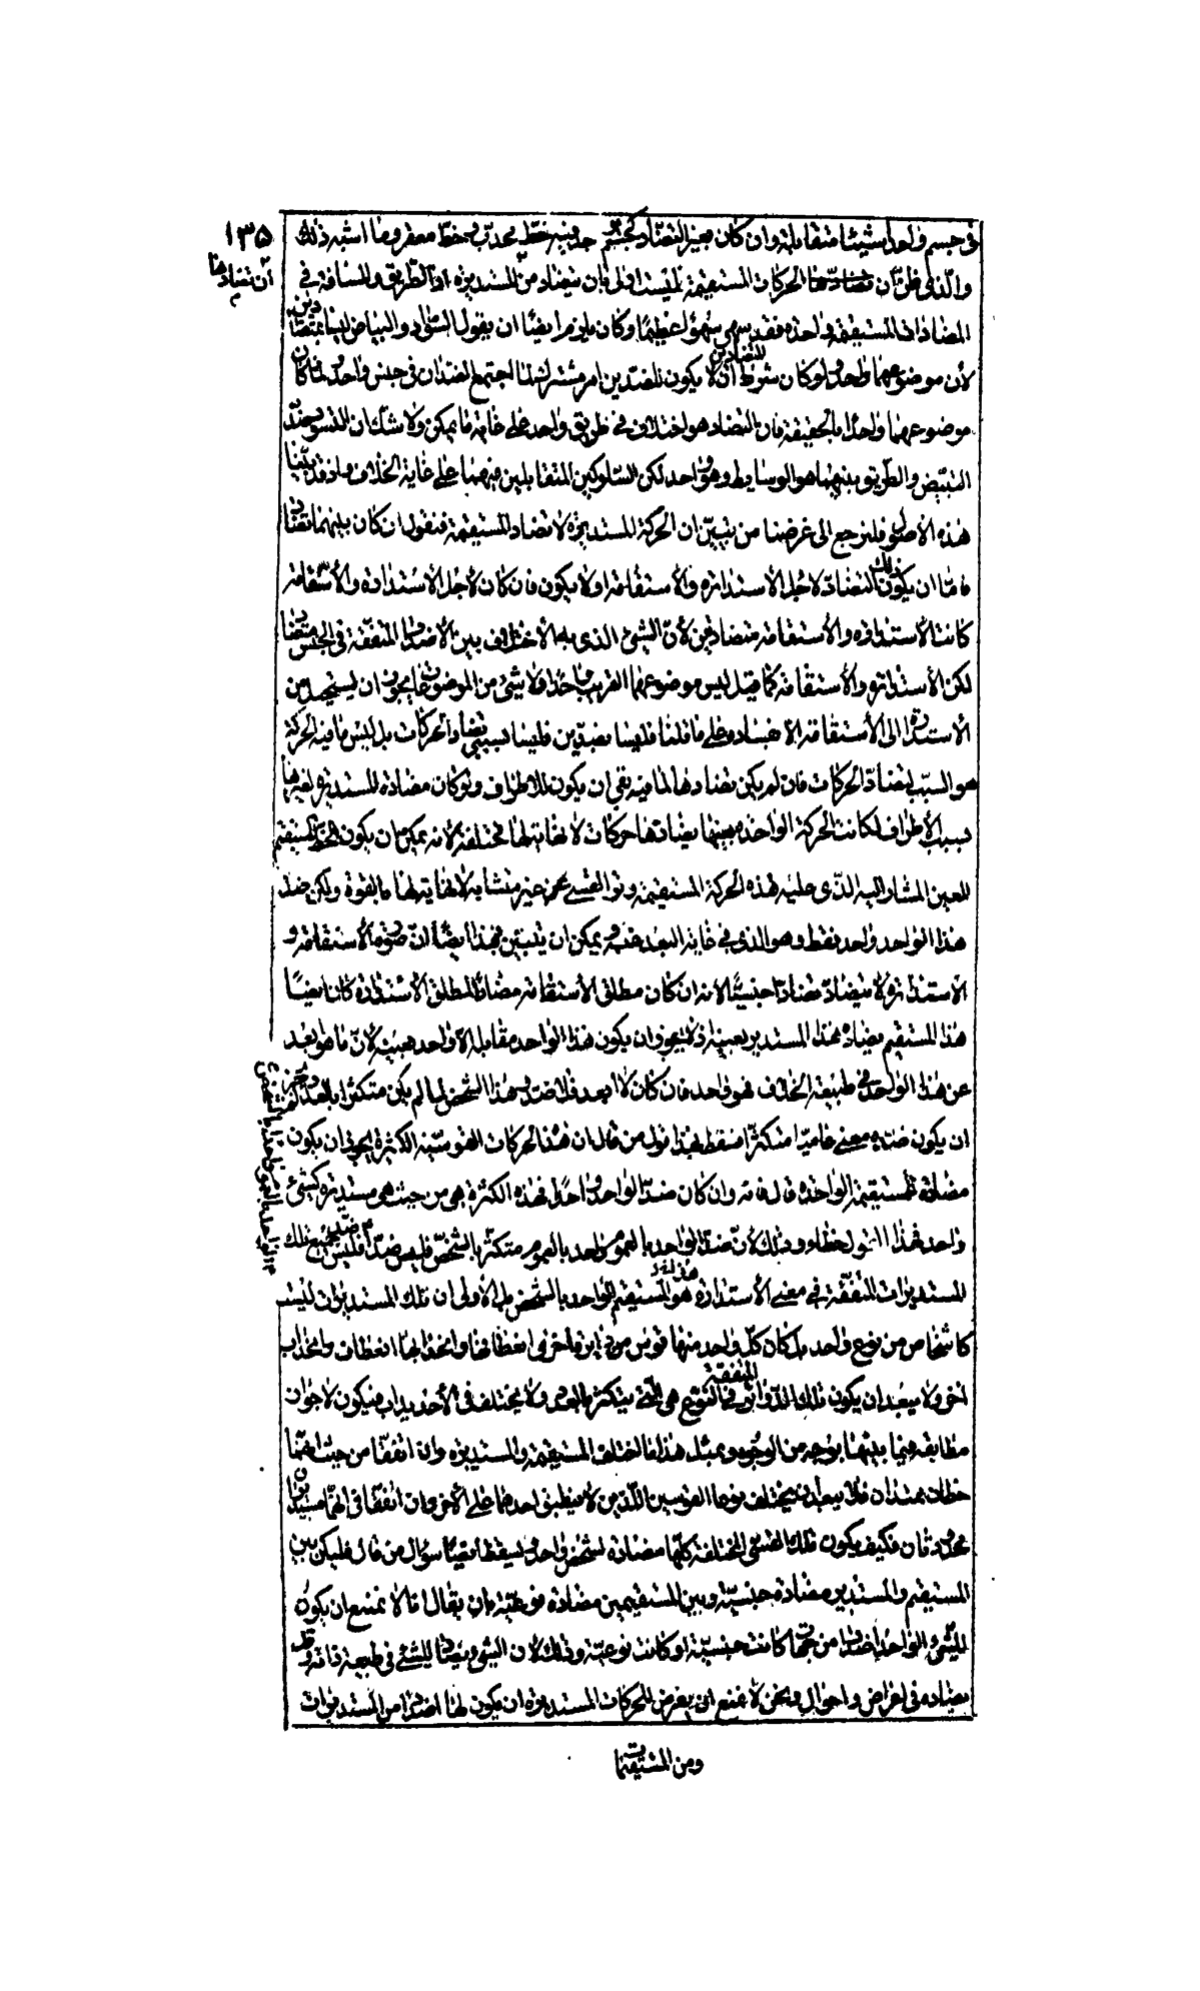 ١٣٥
فى جسم واحد اشيئا متقابلة وان كان بغير التضاد كجسم حد فيه خط محدب وخط مقعر وما اشبه ذلك
والذى ظن ان الحركات المستقيمة ليست اولى بان تضاد من المستديرة اذ الطريق والمسافة فى
ان تضادها
المضادات المستقيمة واحدة فقد سهى سهوا عظيما وكان يلزم ايضا ان يقول السواد والبياض ليسا بمتضادين
لأن موضوعهما واحد ولو كان شرط المتضادين ان لا يكون للضدين امر مشترك لما اجتمع الضدان فى جنس واحد ولما كان
موضوعهما واحدا بالحقيقة فان التضاد هو اختلاف فى طريق واحد على غاية ما يمكن ولا شك ان التسود ضد
التبيض والطريق بينهما هو الوسايط وهو واحد لكن السلوكين المتقابلين فيهما على غاية الخلاف واذ قد بينا
هذه الاصول فلنرجع الى غرضنا من تبيين ان الحركة المستديرة لا تضاد المستقيمة فنقول ان كان بينهما تضاد
فاما ان يكون ذلك التضاد لاجل الاستدارة والاستقامة اولا يكون فان كان لأجل الاستدارة والأستقامة
كانت الأستدارة والأستقامة متضادتين لأن الشئ الذى به الأختلاف بين الأضداد المتفقة فى الجنس متضاد
لكن الأستدارة والأستقامة كما قيل ليس موضوعهما القريب واحدا ولا شئ من الموضوعات يجوز ان يستحيل من
الاستدارة الى الأستقامة الا بفساده على ما قلنا فليسا بضدين فليسا بسببى تضاد الحركات بل ليس ما فيه الحركة
هو السبب لتضاد الحركات فان لم يكن تضادها لما فيه بقى ان يكون للاطراف ولو كان مضادة المستديرة لغيرها
بسبب الأطراف لكانت الحركة الواحدة بعينها يضادها حركات لا نهاية لها مختلفة لأنه يمكن ان يكون الخط المستقيم
المعين المشار اليه الذى عليه هذه الحركة المستقيمة وتر القسى غير متشابهة لا نهاية لها بالقوة ولكن ضد
هذا الواحد واحد فقط وهو الذى فى غاية البعد عنه ويمكن ان يتبين بهذا ايضا ان صورة الأستقامة و
الأستدارة لا يتضاد تضادا جنسيا لانه ان كان مطلق الأستقامة مضادا لمطلق الأستدارة كان ايضا
هذا المستقيم يضاده هذا المستدير بعينه اذ لا يجوز ان يكون هذا الواحد مقابله الا واحد بعينه لأن ما هو ابعد
عن هذا الواحد فى طبيعة الخلاف فهو واحد فان كان لا ابعد فلا ضد وهذا الشخص لما لم يكن متكثرا بالعدد
ان يكون ضده معنى عاميا متكثرا فسقط بهذا قول من قال ان هذه الحركات القوسية الكثيرة يجوز ان يكون
مضادة للمستقيمة الواحدة قال فانه وان كان ضد الواحد واحدا فهذه الكثرة هى من حيث هى مستديرة كشئ
واحد فهذا القول خطاء وذلك لأن ضد الواحد بالعموم واحد بالعموم متكثر بالشخص فليس ضدا فليس جميع تلك
المستديرات المتفقة فى معنى الأستدارة هو المستقيم الواحد بالشخص بل الأولى ان تلك المستديرات ليست
كاشخاص من نوع واحد بل كان كل واحد منها قوس من دايرة اخرى انعطافها وانحدابها انعطاف وانحداب
اخر ولا يبعد ان يكون تلك الدوائر المتفقة فى النوع هى التى يتكثر بالعدد ولا يختلف فى الأحديداب فيكون لا جواز
مطابقة فيما بينها بوجه من الوجوه وبمثل هذا ما اختلف المستقيمة والمستديرة وان اتفقا من حيث انهما
خطان ممتدان فلا يبعد ان يختلف نوعا القوسين اللذين لا ينطبق احدهما على الأخر وان اتفقا فى انهما مستديران
محدودتان فكيف يكون تلك القسى المختلفة كلها مضادة لشخص واحد ويسقط ايضا سؤال من قال فليكن بين
المستقيم والمستدير مضادة جنسية وبين المستقيمين مضادة نوعية بان يقال انا لا نمنع ان يكون
للشئ الواحد اضداد من جهات كانت جنسية او كانت نوعية وذلك لان الشئ يضاد الشئ فى طبيعة ذاته وقد
يضاده فى اعراض واحوال ونحن لا نمنع ان يعرض للحركات المستديرة ان يكون لها اضدادا من المستديرات
ومن المستقيمات